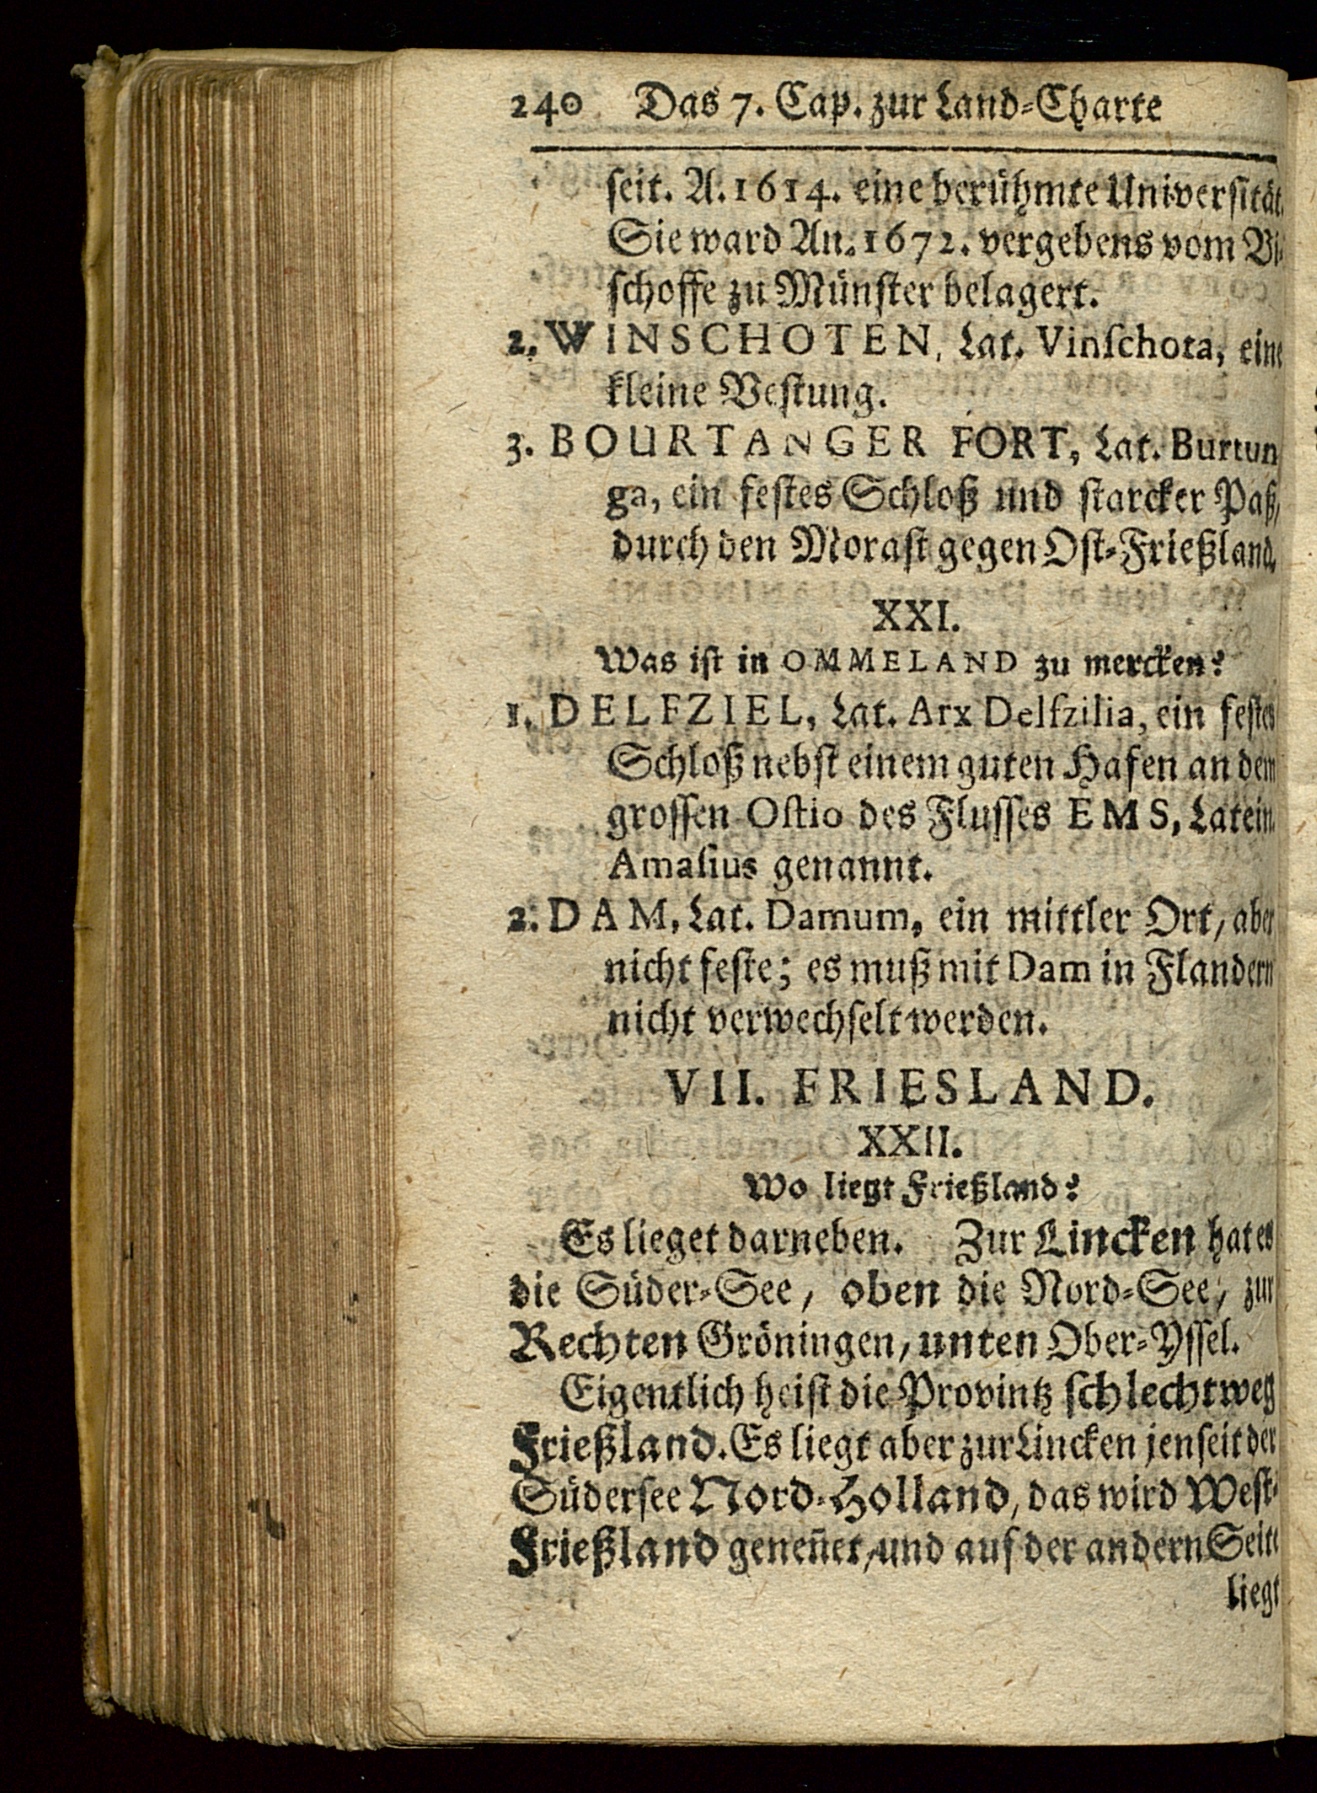 240 Das 7. Cap. zur Land-Charte
seit. A. 1614. eine berühmte Universität.
Sie ward An. 1672. vergebens vom Bi-
schoffe zu Münster belagert.
2. WINSCHOTEN, Lat. Vinſchota, eine
kleine Vestung.
3. BOURTANGER FORT, Lat. Burtun
ga, ein festes Schloß und starcker Paß,
durch den Morast gegen Ost-Frießland.
XXI.
Was ist in OMMELAND zu mercken?
1. DELFZIEL, Lat. Arx Delfzilia, ein festes
Schloß nebst einem guten Hafen an dem
grossen Ostio des Flusses EMS, Latein.
Amaſius genannt.
2. DAM, Lat. Damum, ein mittler Ort, aber
nicht feste; es muß mit Dam in Flandern
nicht verwechselt werden.
VII. FRIESLAND.
XXII.
Wo liegt Frießland?
Es lieget darneben. Zur Lincken hat es
die Süder-See, oben die Nord-See, zur
Rechten Gröningen, unten Ober-Yssel.
Eigentlich heist die Provintz schlechtweg
Frießland. Es liegt aber zur Lincken jenseit der
Südersee Nord-Holland, das wird West-
Frießland geneñet, und auf der andern Seite
liegt